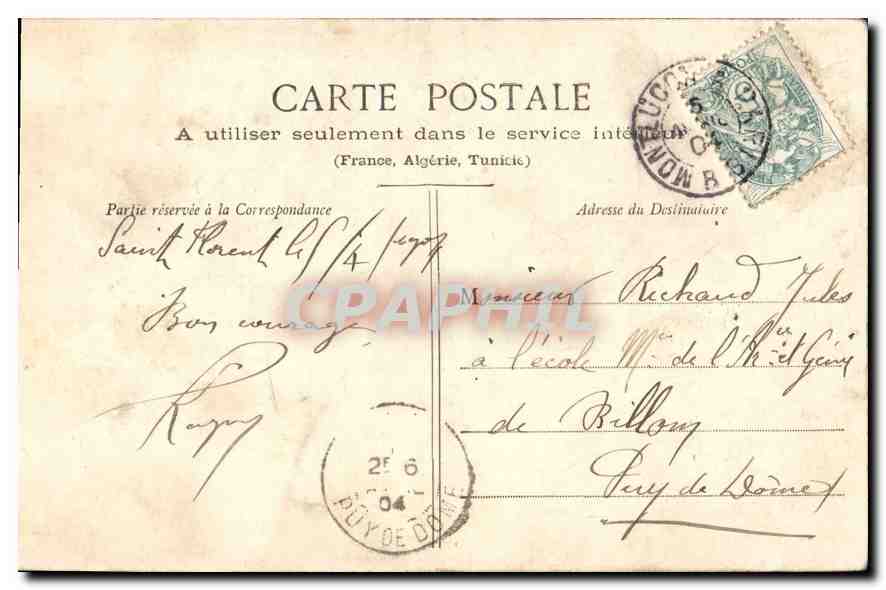 CARTE POSTALE
A utiliser seulement dans le service intérieur
(France, Algérie, Tunisie)
Partie réservée à la Correspondance
Adresse du Destinataire
Saint Florent le 5/4/
Bon courage
Monsieur Richard Jules
à l'école Mre de l'Arie et Génie
de Billom
Puy de Dôme
MONTLUCON
25 6
04
PUY DE DOME
CPAPHIL